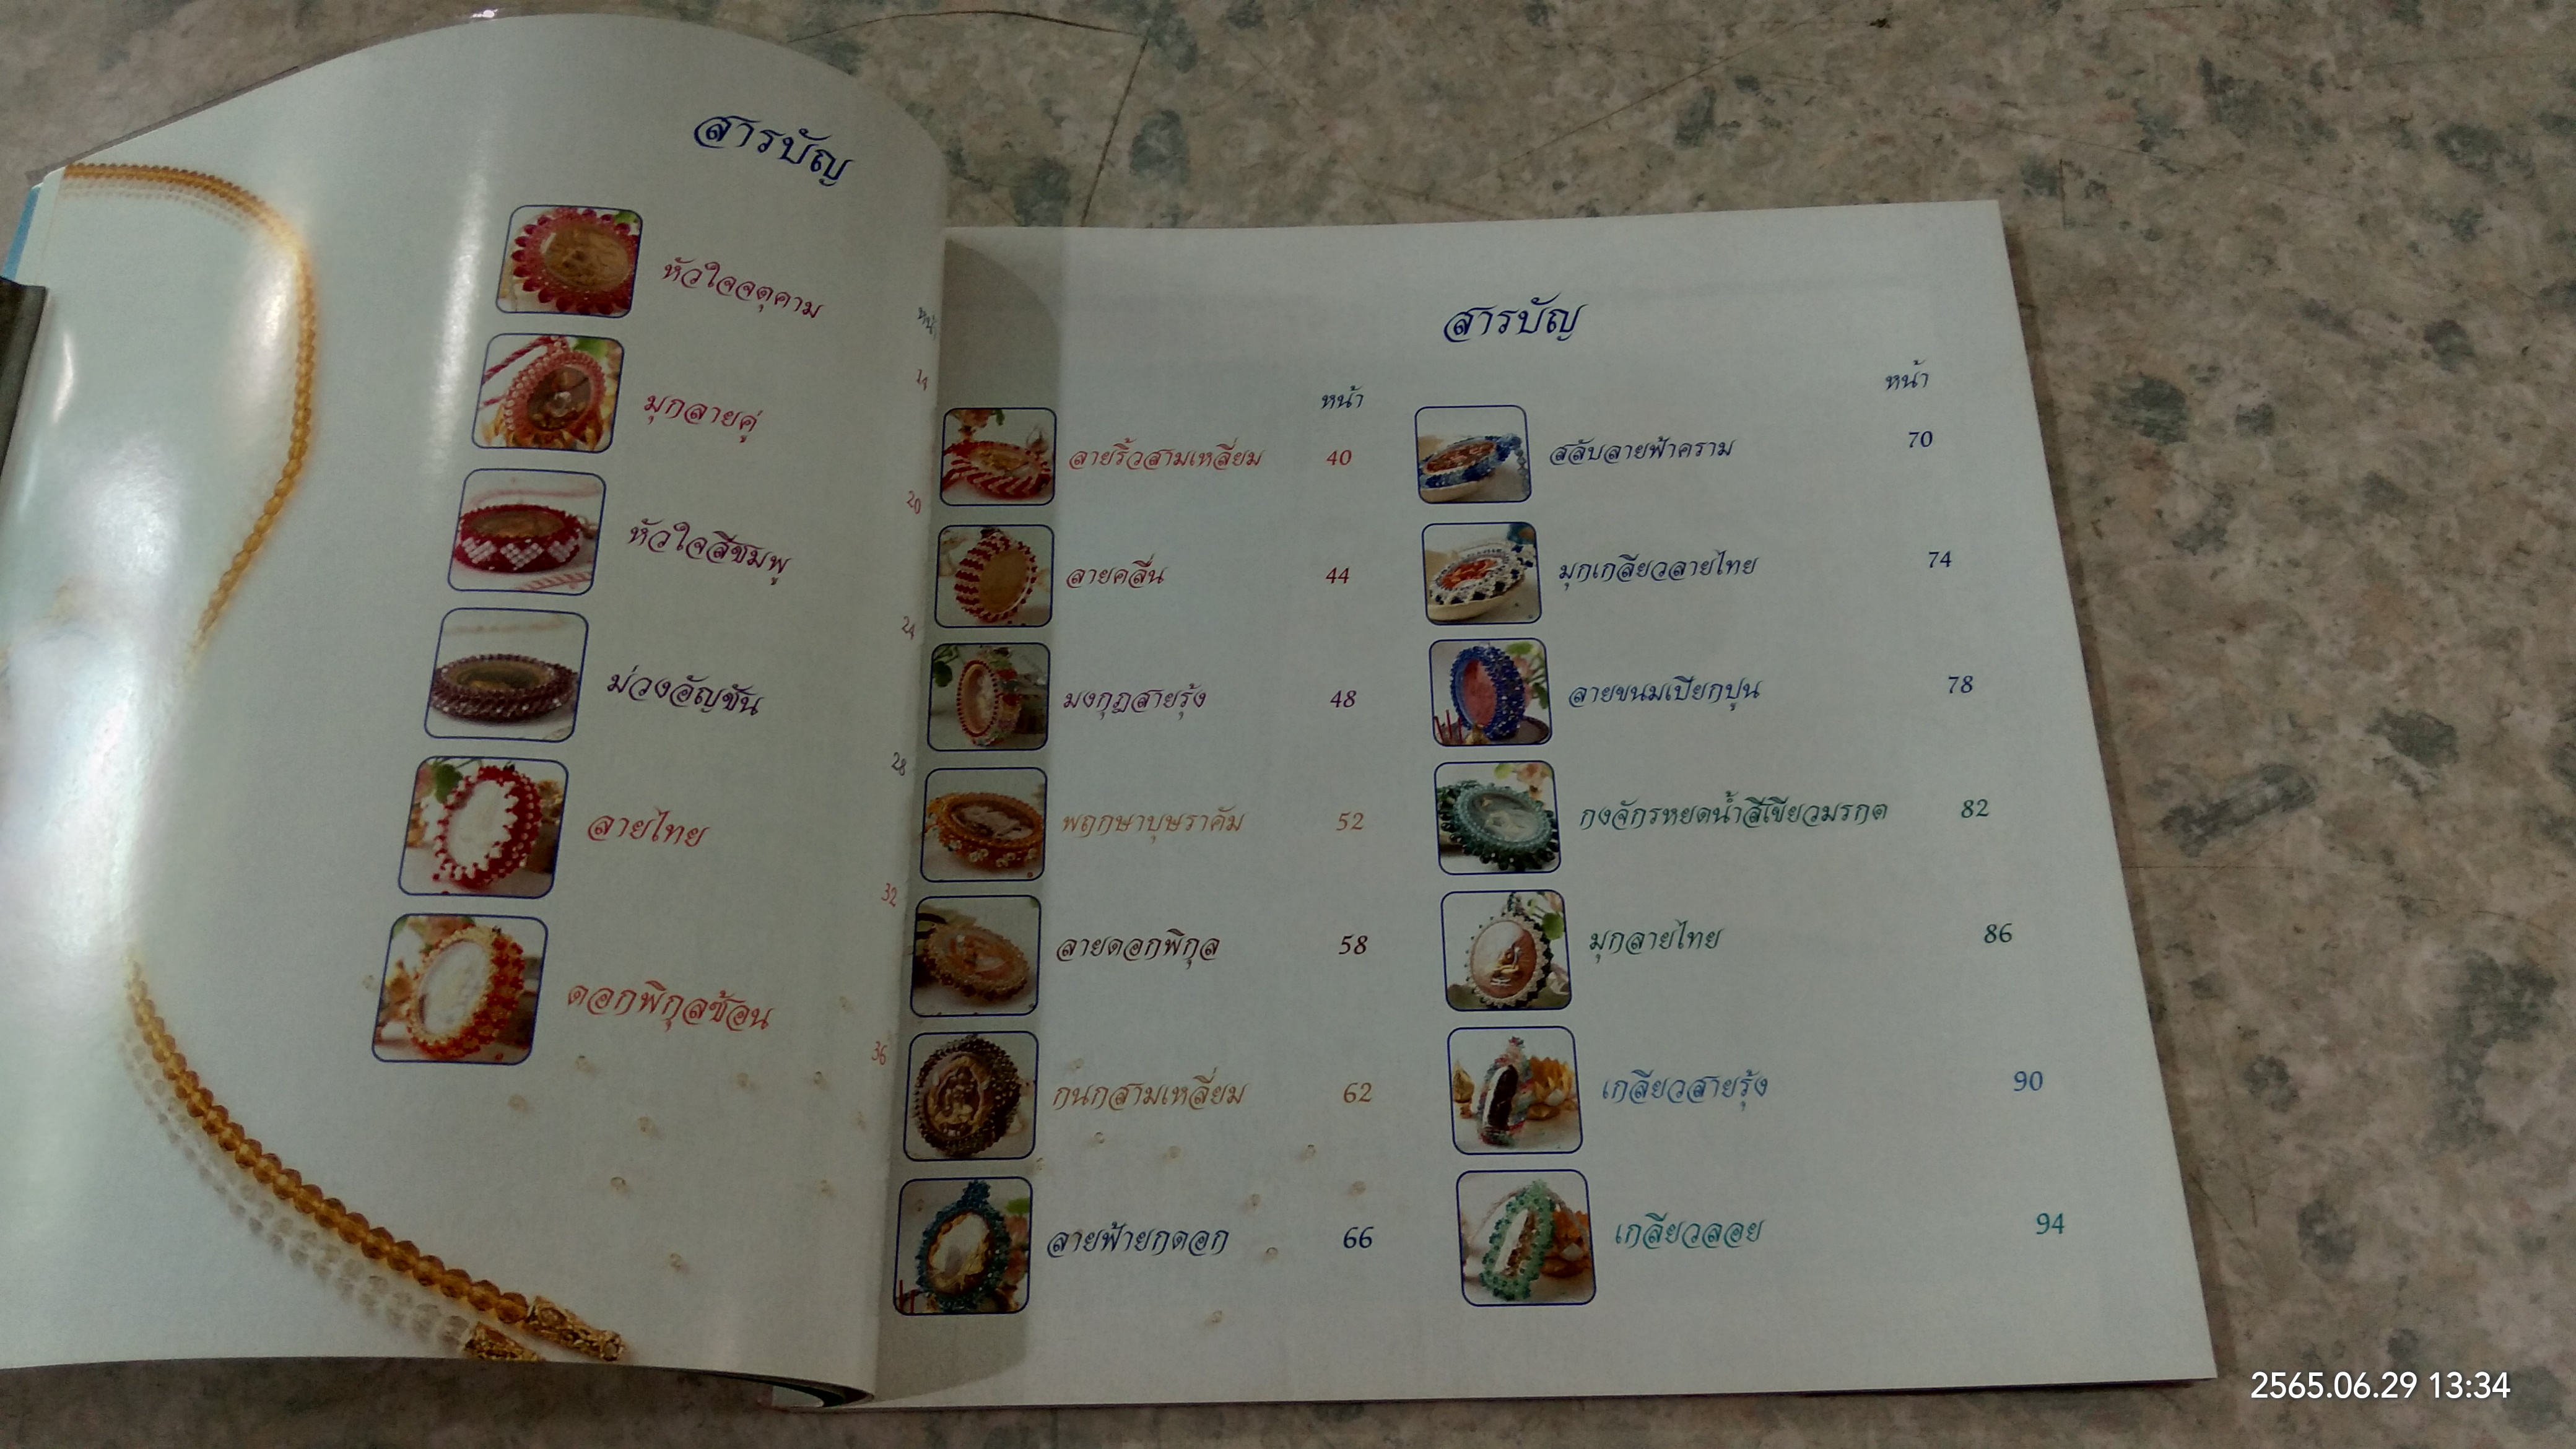 สารบัญ
หน้า
หัวใจจตุคาม 14
มุกลายคู่ 20
หัวใจสีชมพู 24
ม่วงอัญชัน 28
ลายไทย 32
ดอกพิกุลซ้อน 36
สารบัญ
หน้า
ลายริ้วสามเหลี่ยม 40
ลายคลื่น 44
มงกุฎสายรุ้ง 48
พฤกษาบุษราคัม 52
ลายดอกพิกุล 58
กนกสามเหลี่ยม 62
ลายฟ้ายกดอก 66
หน้า
สลับลายฟ้าคราม 70
มุกเกลียวลายไทย 74
ลายขนมเปียกปูน 78
กงจักรหยดน้ำสีเขียวมรกต 82
มุกลายไทย 86
เกลียวสายรุ้ง 90
เกลียวลอย 94
2565.06.29 13:34